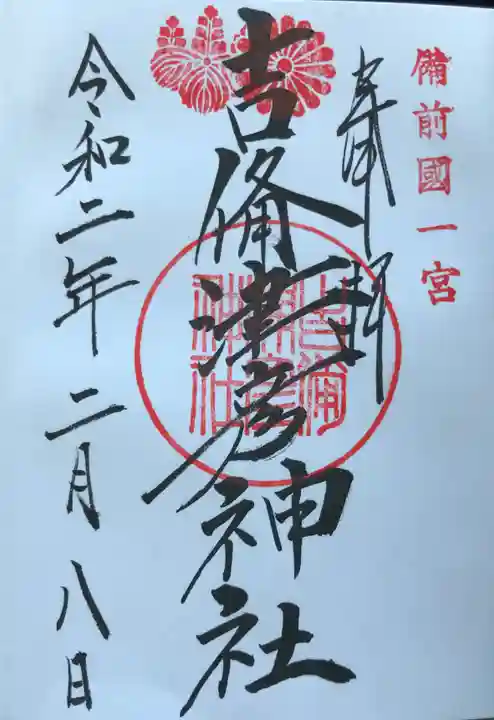 備前國一宮
奉拝
吉備津彦神社
吉備津彦神社
令和二年二月八日